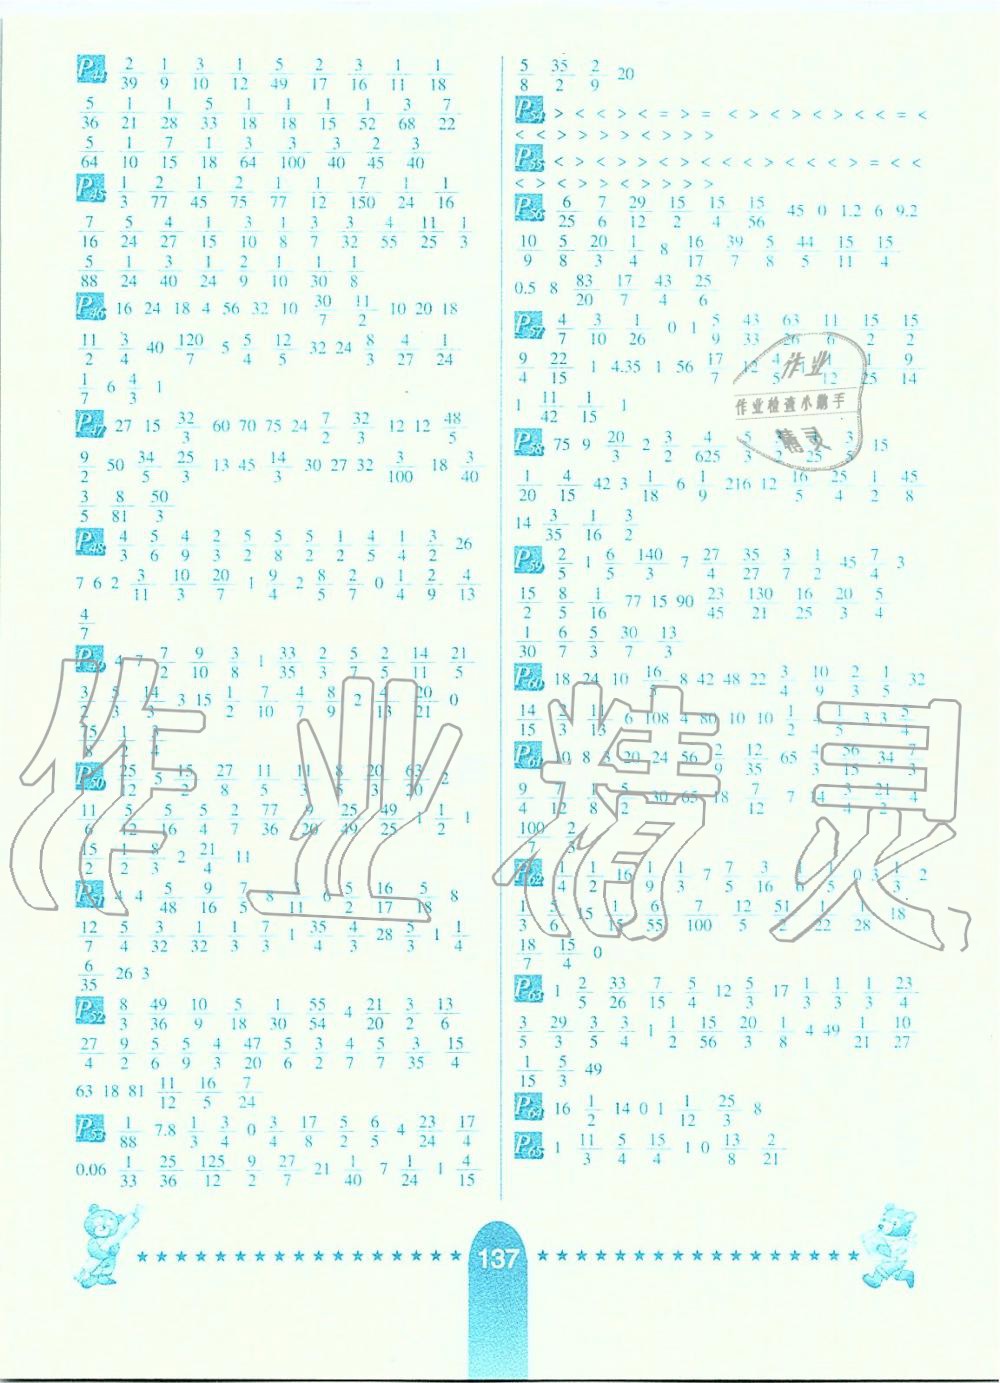 P44 2/39 1/9 3/10 1/12 5/49 2/17 3/16 1/11 1/18
5/36 1/21 1/28 5/33 1/18 1/18 1/15 1/52 3/68 7/22
5/64 1/10 7/15 1/18 3/64 3/100 3/40 2/45 3/40
P45 1/3 2/77 1/45 2/75 1/77 1/12 7/150 1/24 1/16
7/16 5/24 4/27 1/15 3/10 1/8 3/7 3/32 4/55 11/25 1/3
5/88 1/24 3/40 1/24 2/9 1/10 1/30 1/8
P46 16 24 18 4 56 32 10 30/7 11/2 10 20 18
11/2 3/4 40 120/7 5 5/4 12/5 32 24 8/3 4/27 1/24
1/7 6 4/3 1
P47 27 15 32/3 60 70 75 24 7/2 32/3 12 12 48/5
9/2 50 34/5 25/3 13 45 14/3 30 27 32 3/100 18 3/40
3/5 8/81 50/3
P48 4/3 5/6 4/9 2/3 5/2 5/8 5/2 1/2 4/5 1/4 3/2 26
7 6 2 3/11 10/3 20/7 1 9/4 2 8/5 2/7 0 1/4 2/9 4/13
4/7
7/2 9/10 3/8 1 33/35 2/3 5/7 2/5 14/11 21/5
3 15 1/2 7/10 4/7 8/9 2 4/13 20/21 0
P50 25/12 5 15/2 27/8 11/5
2
1 1/2 1
15/2 1/2 8/3 2 21/4 11
4 4 5/48 9/16 7/5 8
16/17 5/18 8
12/7 5/4 3/32 1/32 1/3 7/3 1 35/4 4/3 28 5/3 1 1/4
6/35 26 3
P52 8/3 49/36 10/9 5/18 1/30 55/54 4 21/20 3/2 13/6
27/4 9/2 5/6 5/9 4/3 47/20 5/6 3/2 4/7 5/7 3/35 15/4
63 18 81 11/12 16/5 7/24
P53 1/88 7.8 1/3 3/4 0 3/4 17/8 5/2 6/5 4 23/24 17/4
0.06 1/33 25/36 125/12 9/2 27/7 21 1/40 7 1/24 1 4/15
5/8 35/2 2/9 20
P54 > < < > < = > = < > < > < < < = <
< < > > > > < > > >
P55 < > < > < > < > < < < < < < > = < <
< > < > > < > > > >
P56 6/25 7/6 29/12 15/2 15/4 15/56 45 0 1.2 6 9.2
10/9 5/8 20/3 1/4 8 16/17 39/7 5/8 44/5 15/11 15/4
0.5 8 83/20 17/7 43/4 25/6
P57 4/7 3/10 1/26 0 1 5/9 43/33 63/26 11/6 15/2 15/2
9/4 22/15 1 4.35 1 56 17/7 12 1/25 9/14
1 11/42 1/15 1
P58 75 9 20/3 2 3/2 4/625 15
1/20 4/15 42 3 1/18 6 1/9 216 12 16/5 25/4 1/2 45/8
14 3/35 1/16 3/2
P59 2/5 1 6/5 140/3 7 27/4 35/27 3/7 1/2 45 7/4 3
15/2 8/5 1/16 77 15 90 23/45 130/21 16/25 20/3 5/4
1/30 6/7 5/3 30/7 13/3
P60 18 24 10 16/3 8 42 48 22 3/4 10/9 2/3 1/5 32
14/15 6 108 4 80 10 10 1/2 3 3 5/4
P61 8 3 20 24 56 2/9 12/35 65 34 7/3
9/4 30 65 18 7/12
100/7 2/3
P62 1/4 1/2 16 1/9 1/3 7 7/5 3/16 2
1/3 5/6 15 6/55 7/100 12/5 51/2 1/22 1/28 18
18/7 15/4 0
P63 1 2/5 33/26 7/15 5/4 12 5/3 17 1/3 1/3 1/3 23/4
3/5 29/3 3/5 3/4 1 1/2 15/56 20/3 1/8 4 49 1/21 10/27
1/15 5/3 49
P64 16 1/2 14 0 1 1/12 25/3 8
P65 1 11/3 5/4 15/4 1 0 13/8 2/21
作业
作业检查小助手
精灵
作业精灵
137